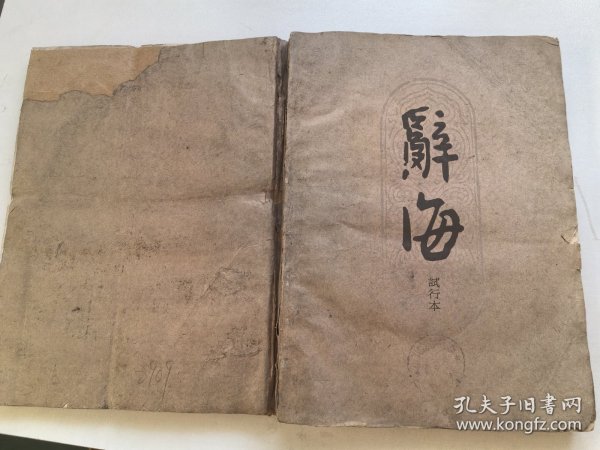 辭海
試行本
孔夫子旧书网
www.kongfz.com